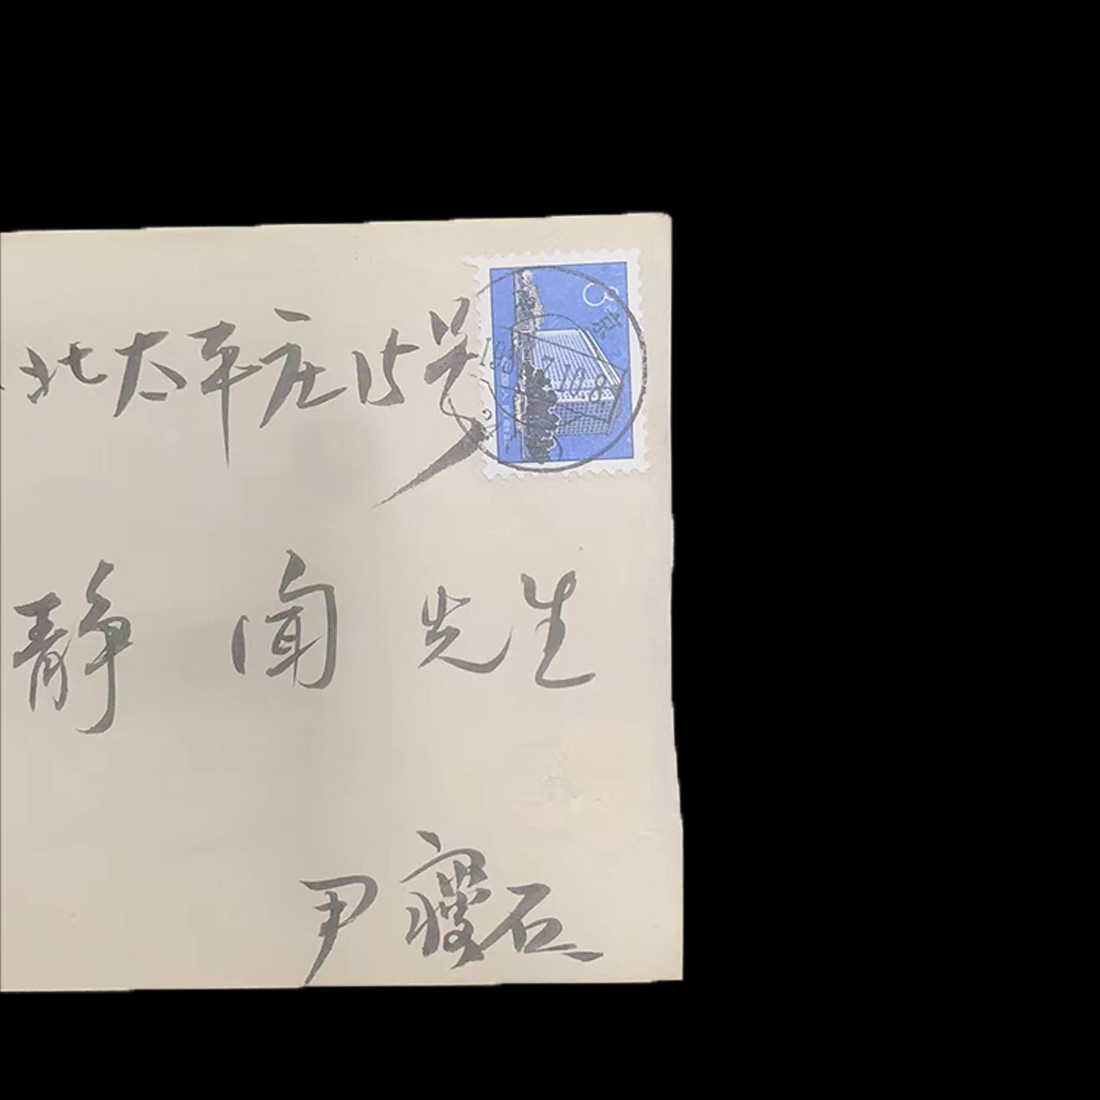 北太平庄15号
8
京
静闻先生
尹瘦石